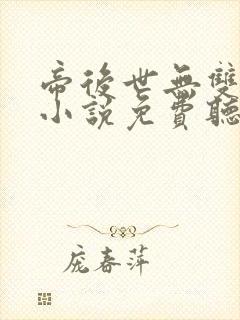 帝後世無雙
小說免費聽
龐春萍